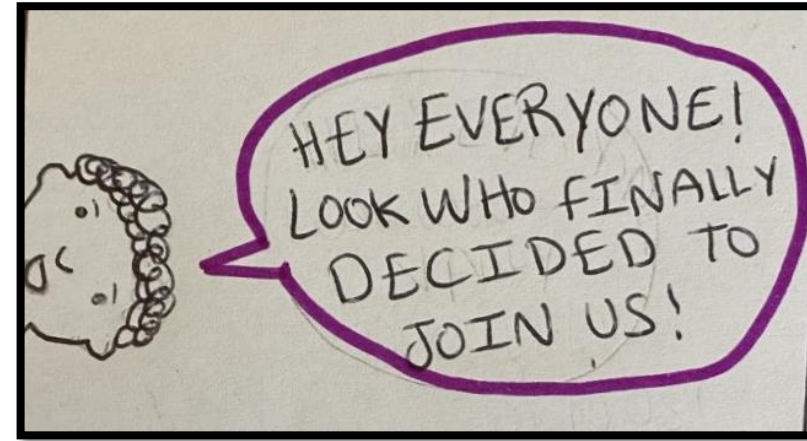 HEY EVERYONE!
LOOK WHO FINALLY
DECIDED TO
JOIN US!